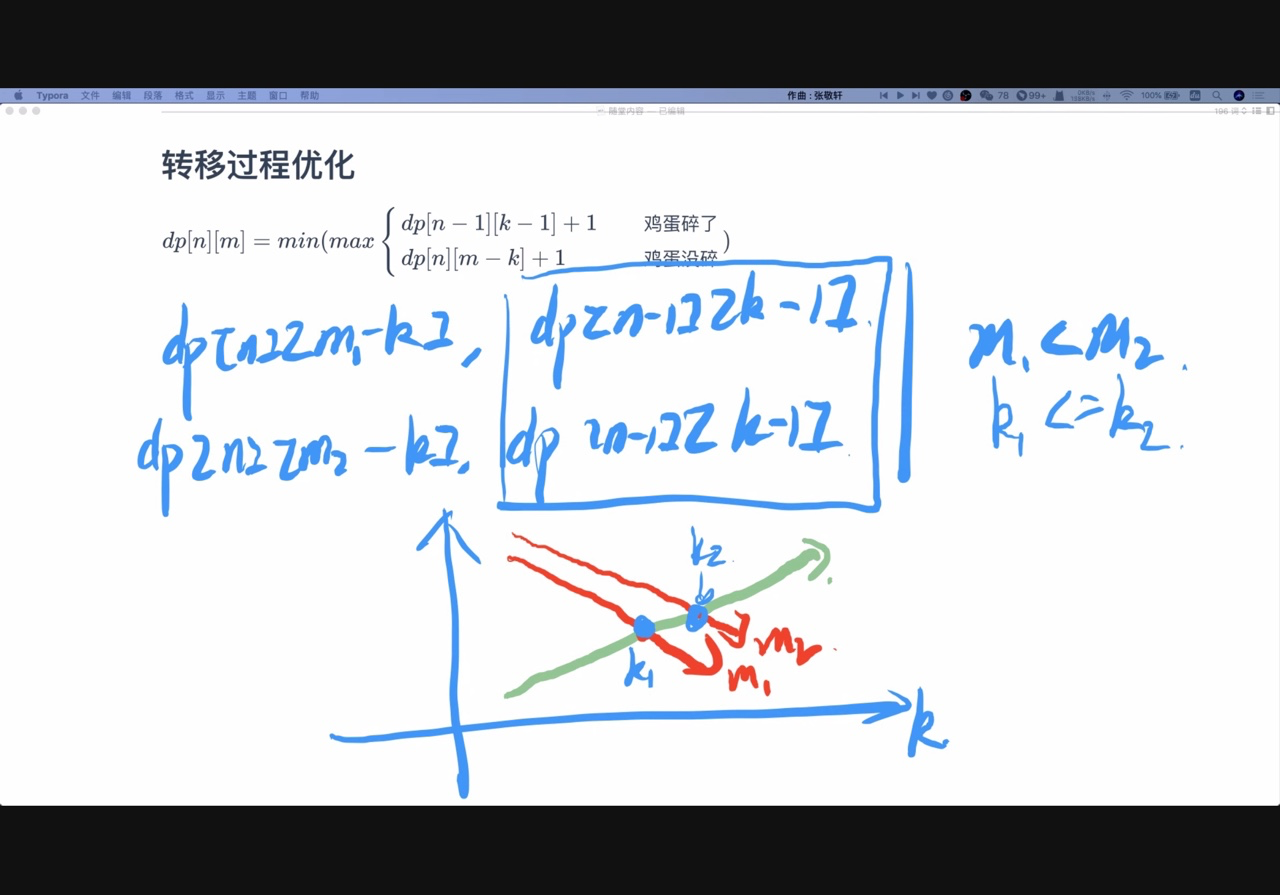 Typora 文件 编辑 段落 格式 显示 主题 窗口 帮助 作曲 : 张敬轩 78 99+ 100%
随堂内容 — 已编辑 196 词
转移过程优化
dp[n][m] = min(max { dp[n − 1][k − 1] + 1 鸡蛋碎了
dp[n][m − k] + 1 鸡蛋没碎 )
dp[n][m₁-k], dp[n-1][k-1]
m₁<m₂
dp[n][m₂-k], dp[n-1][k-1]
k₁<=k₂
k₂
m₂
k₁ m₁
k